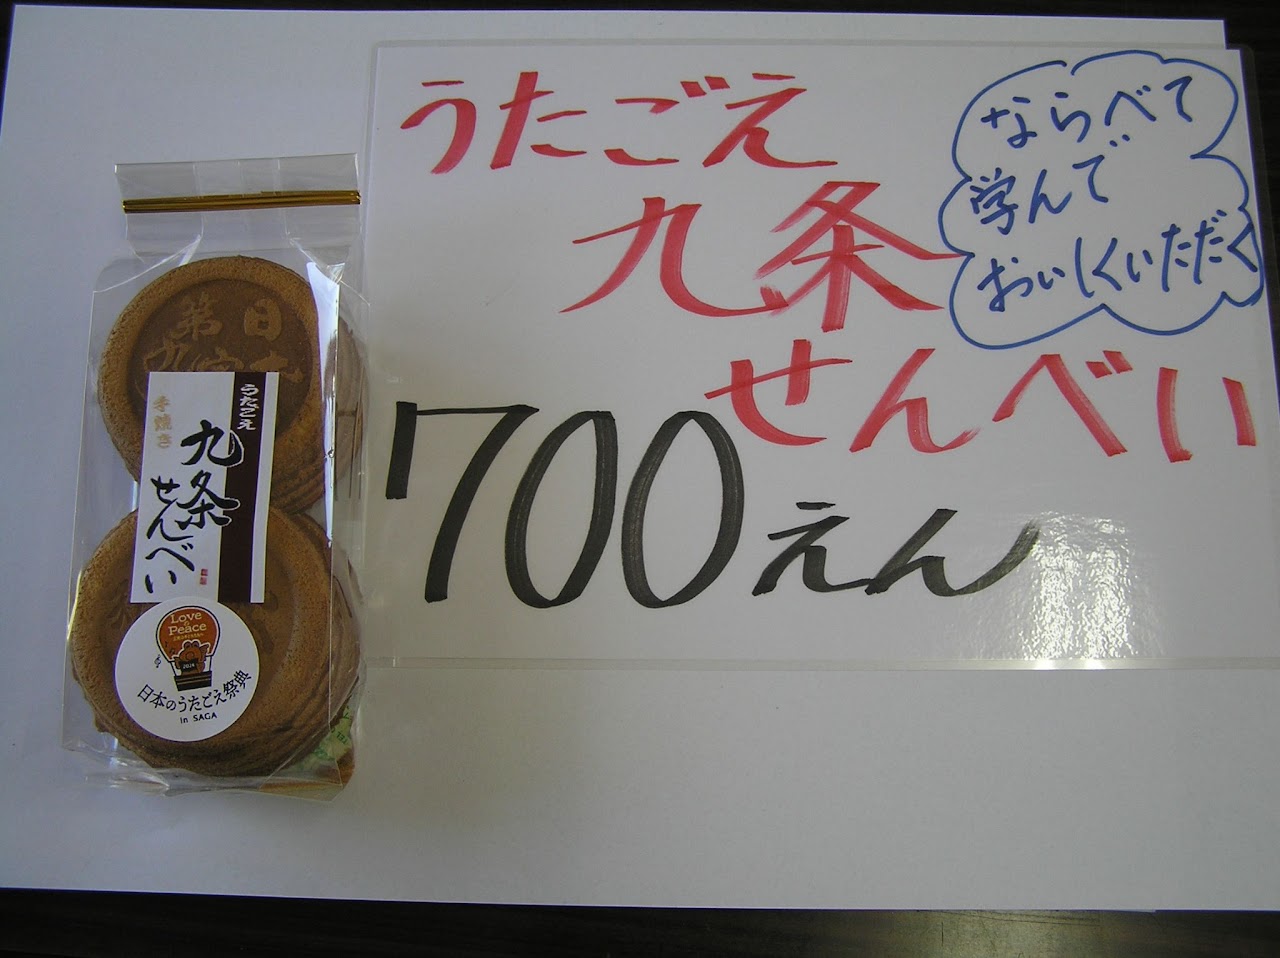 うたごえ
九条
せんべい
700えん
ならべて
学んで
おいしくいただく
日
第九
うたごえ
九条
せんべい
手焼き
Love
Peace
2024
日本のうたごえ祭典
in SAGA